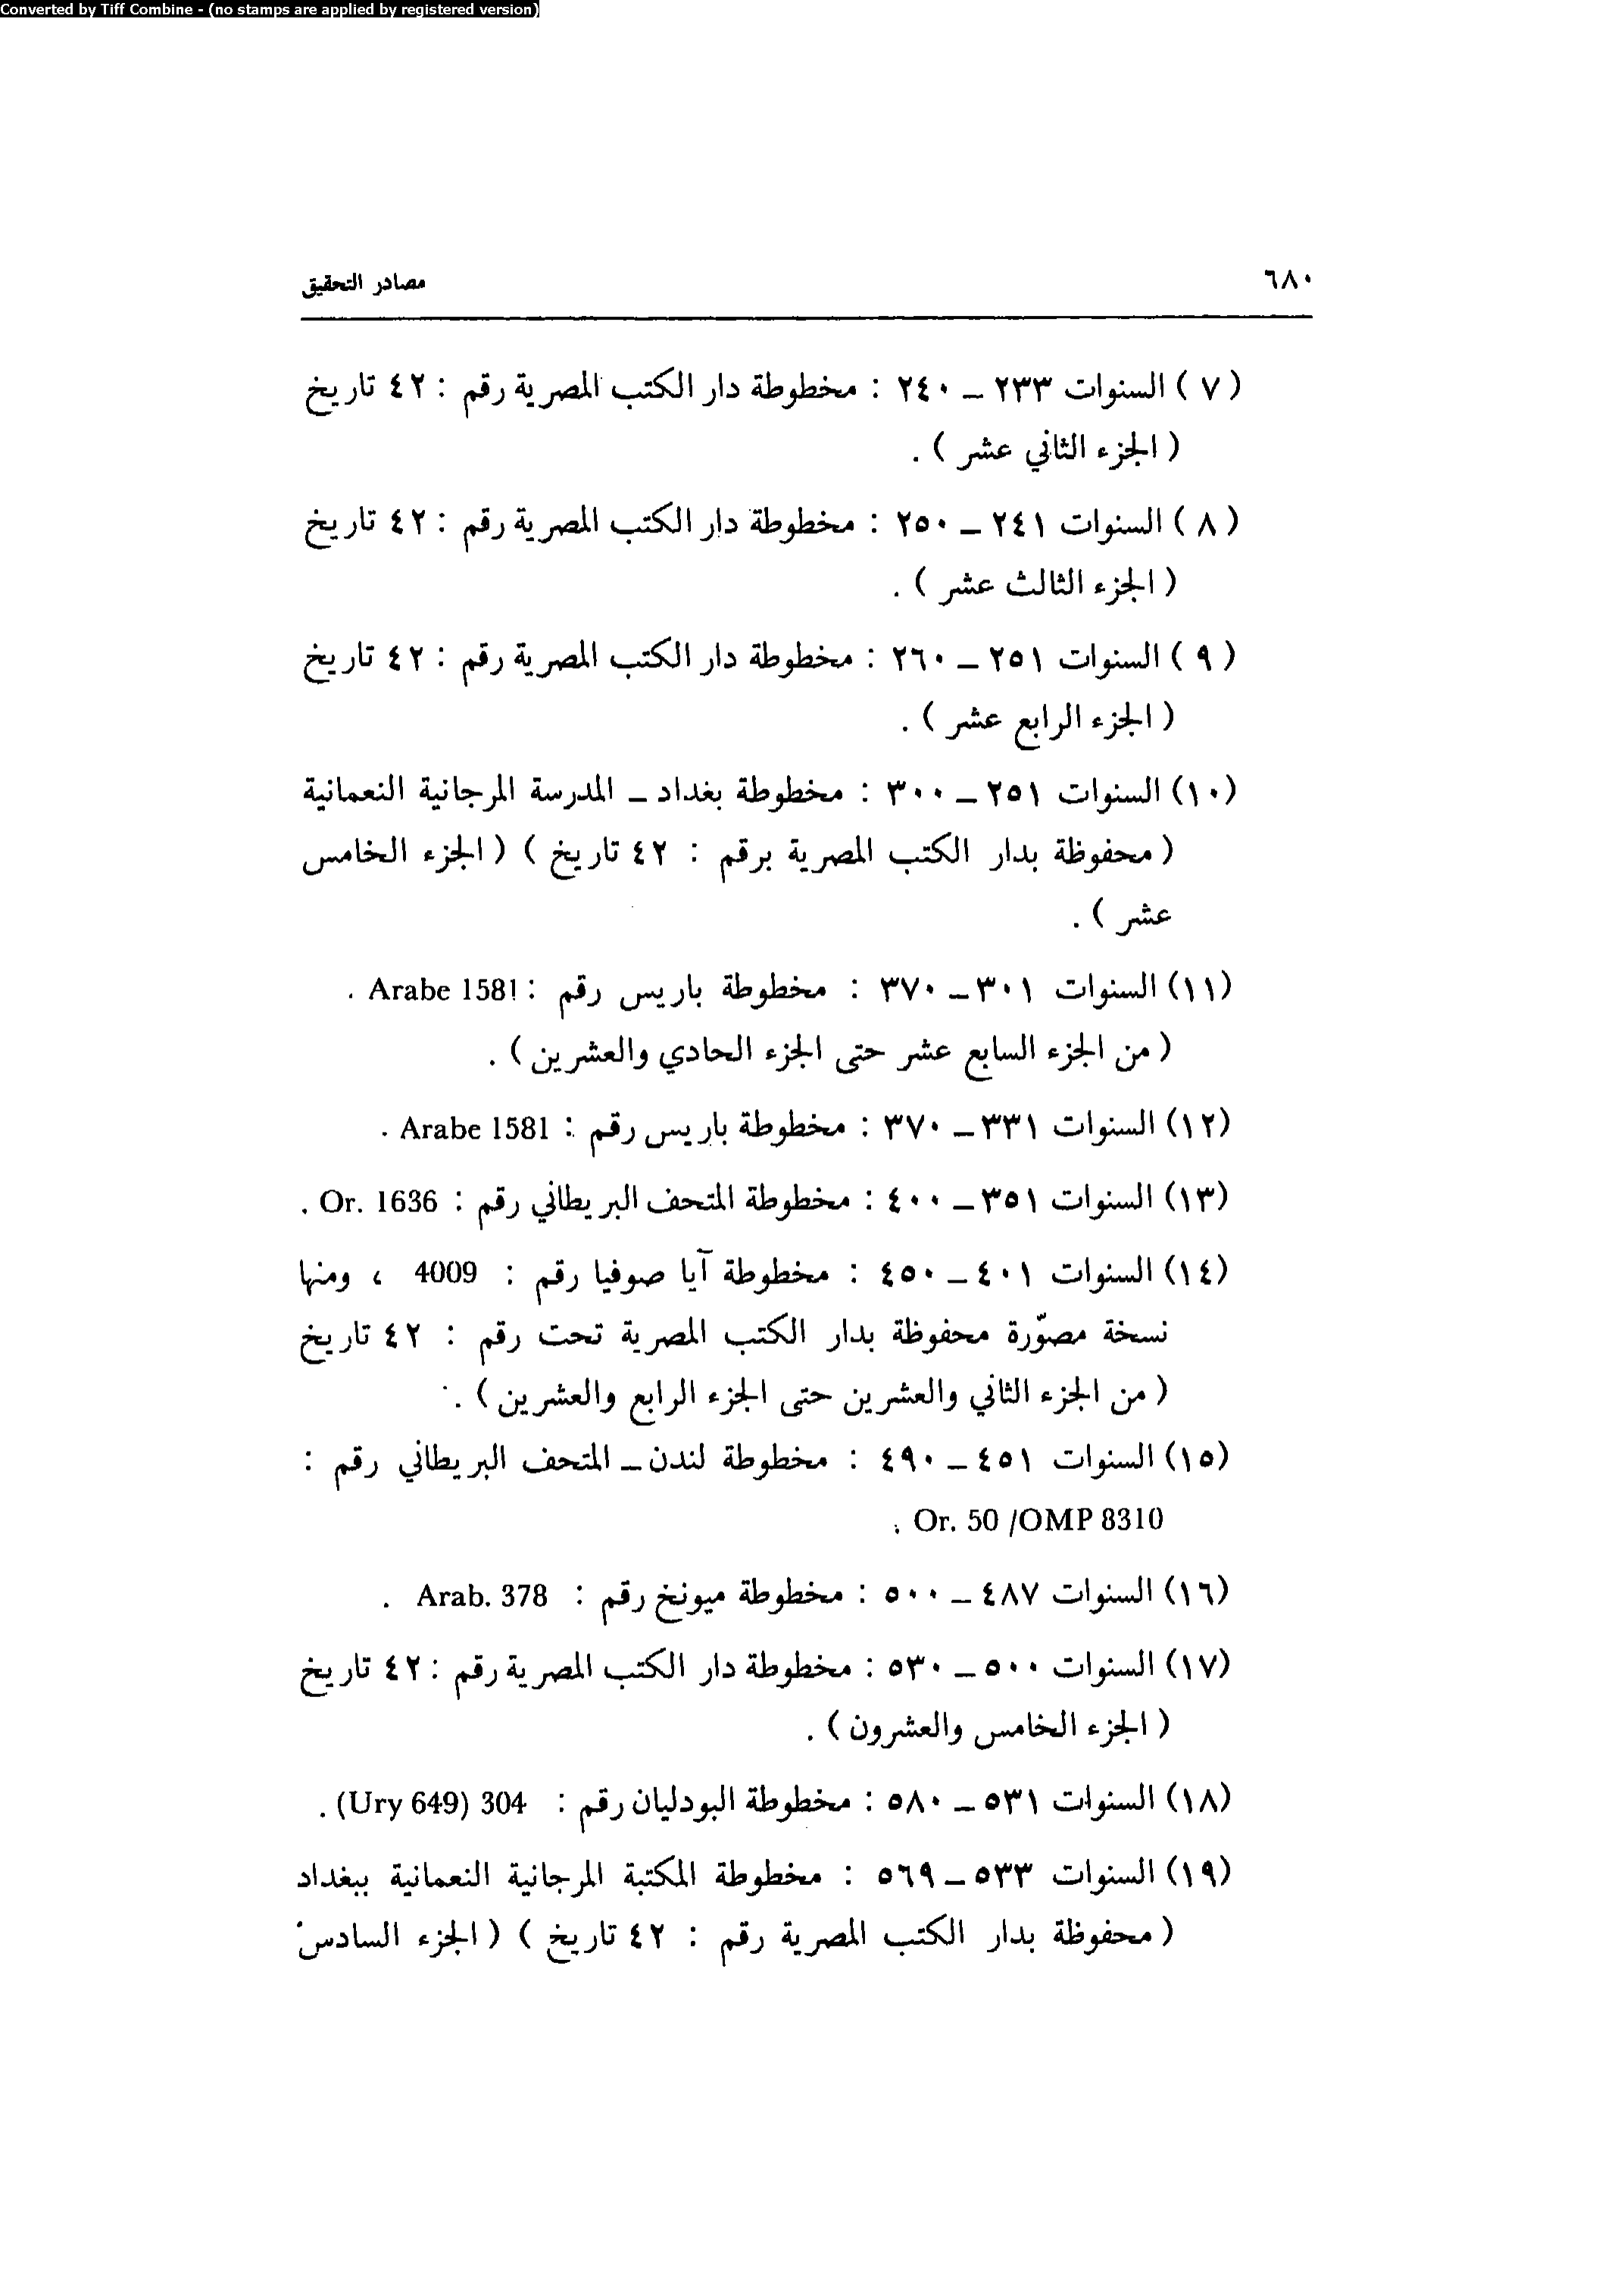 Converted by Tiff Combine - (no stamps are applied by registered version)
٦٨٠ مصادر التحقيق
( ٧ ) السنوات ٢٣٣ – ٢٤٠ : مخطوطة دار الكتب المصرية رقم : ٤٢ تاريخ
( الجزء الثاني عشر ) .
( ٨ ) السنوات ٢٤١ – ٢٥٠ : مخطوطة دار الكتب المصرية رقم : ٤٢ تاريخ
( الجزء الثالث عشر ) .
( ٩ ) السنوات ٢٥١ – ٢٦٠ : مخطوطة دار الكتب المصرية رقم : ٤٢ تاريخ
( الجزء الرابع عشر ) .
(١٠) السنوات ٢٥١ – ٣٠٠ : مخطوطة بغداد – المدرسة المرجانية النعمانية
( محفوظة بدار الكتب المصرية برقم : ٤٢ تاريخ ) ( الجزء الخامس
عشر ) .
(١١) السنوات ٣٠١ – ٣٧٠ : مخطوطة باريس رقم : Arabe 1581 .
( من الجزء السابع عشر حتى الجزء الحادي والعشرين ) .
(١٢) السنوات ٣٣١ – ٣٧٠ : مخطوطة باريس رقم : Arabe 1581 .
(١٣) السنوات ٣٥١ – ٤٠٠ : مخطوطة المتحف البريطاني رقم : Or. 1636 .
(١٤) السنوات ٤٠١ – ٤٥٠ : مخطوطة آيا صوفيا رقم : 4009 ، ومنها
نسخة مصوّرة محفوظة بدار الكتب المصرية تحت رقم : ٤٢ تاريخ
( من الجزء الثاني والعشرين حتى الجزء الرابع والعشرين ) .
(١٥) السنوات ٤٥١ – ٤٩٠ : مخطوطة لندن – المتحف البريطاني رقم :
Or. 50 /OMP 8310 .
(١٦) السنوات ٤٨٧ – ٥٠٠ : مخطوطة ميونخ رقم : Arab. 378 .
(١٧) السنوات ٥٠٠ – ٥٣٠ : مخطوطة دار الكتب المصرية رقم : ٤٢ تاريخ
( الجزء الخامس والعشرون ) .
(١٨) السنوات ٥٣١ – ٥٨٠ : مخطوطة البودليان رقم : 304 (Ury 649) .
(١٩) السنوات ٥٣٣ – ٥٦٩ : مخطوطة المكتبة المرجانية النعمانية ببغداد
( محفوظة بدار الكتب المصرية رقم : ٤٢ تاريخ ) ( الجزء السادس